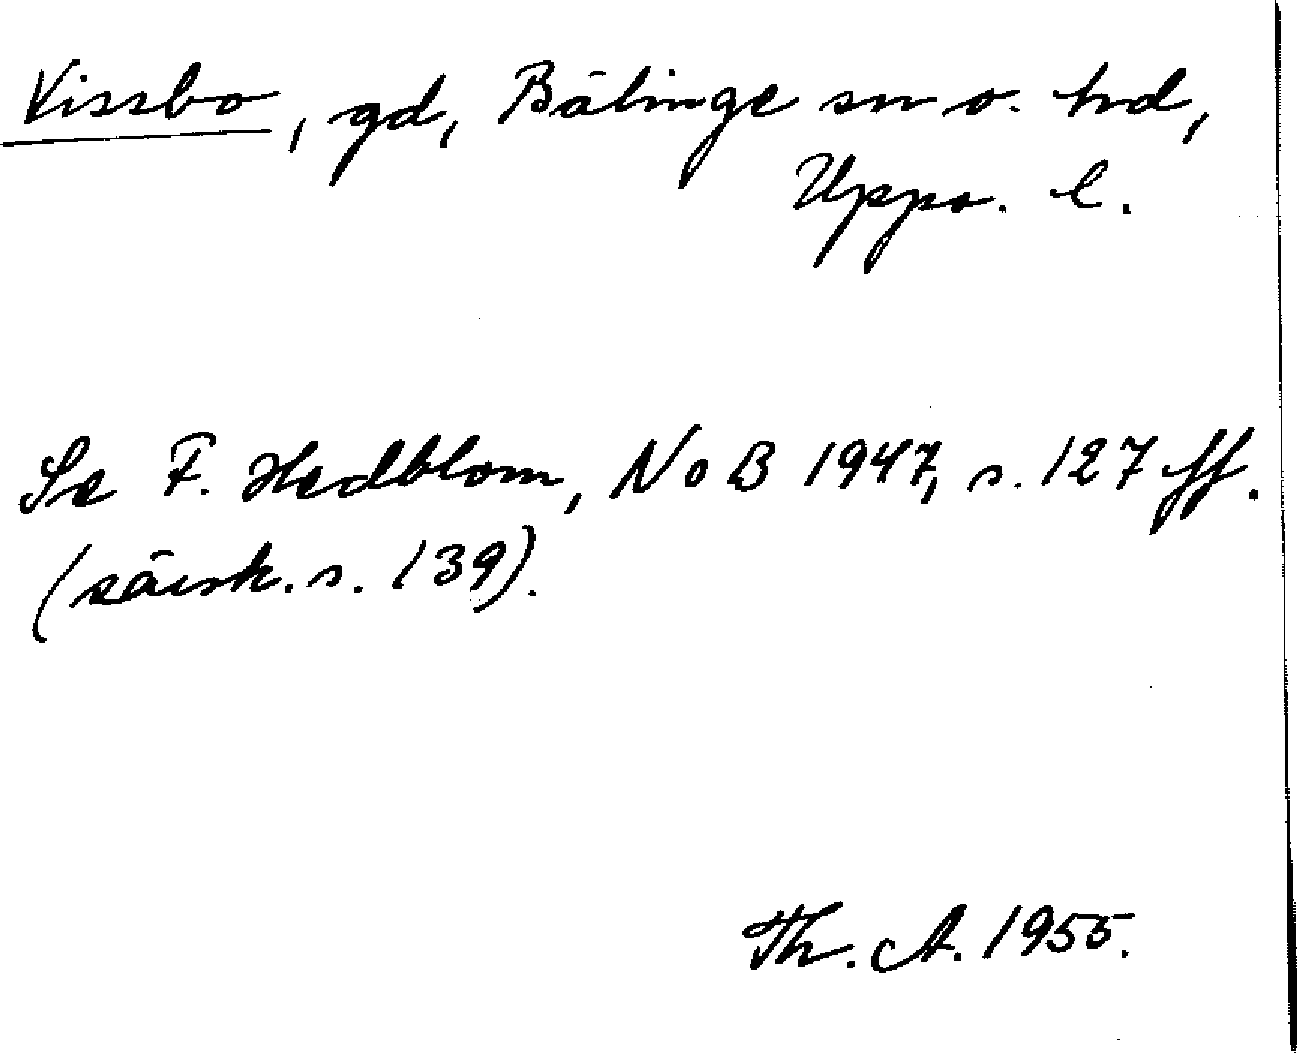 Vissbo, gd, Bälinge sn o. hd,
Upps. l.
Se F. Hedblom, NoB 1947, s. 127 ff.
(särsk. s. 139).
Th. A. 1955.